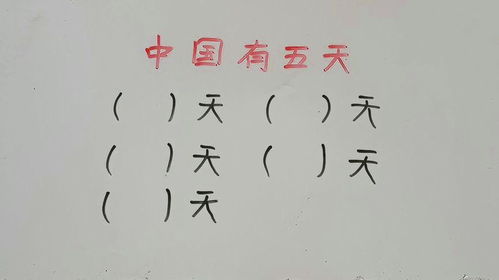 中国有五天
(  )天 (  )天
(  )天 (  )天
(  )天